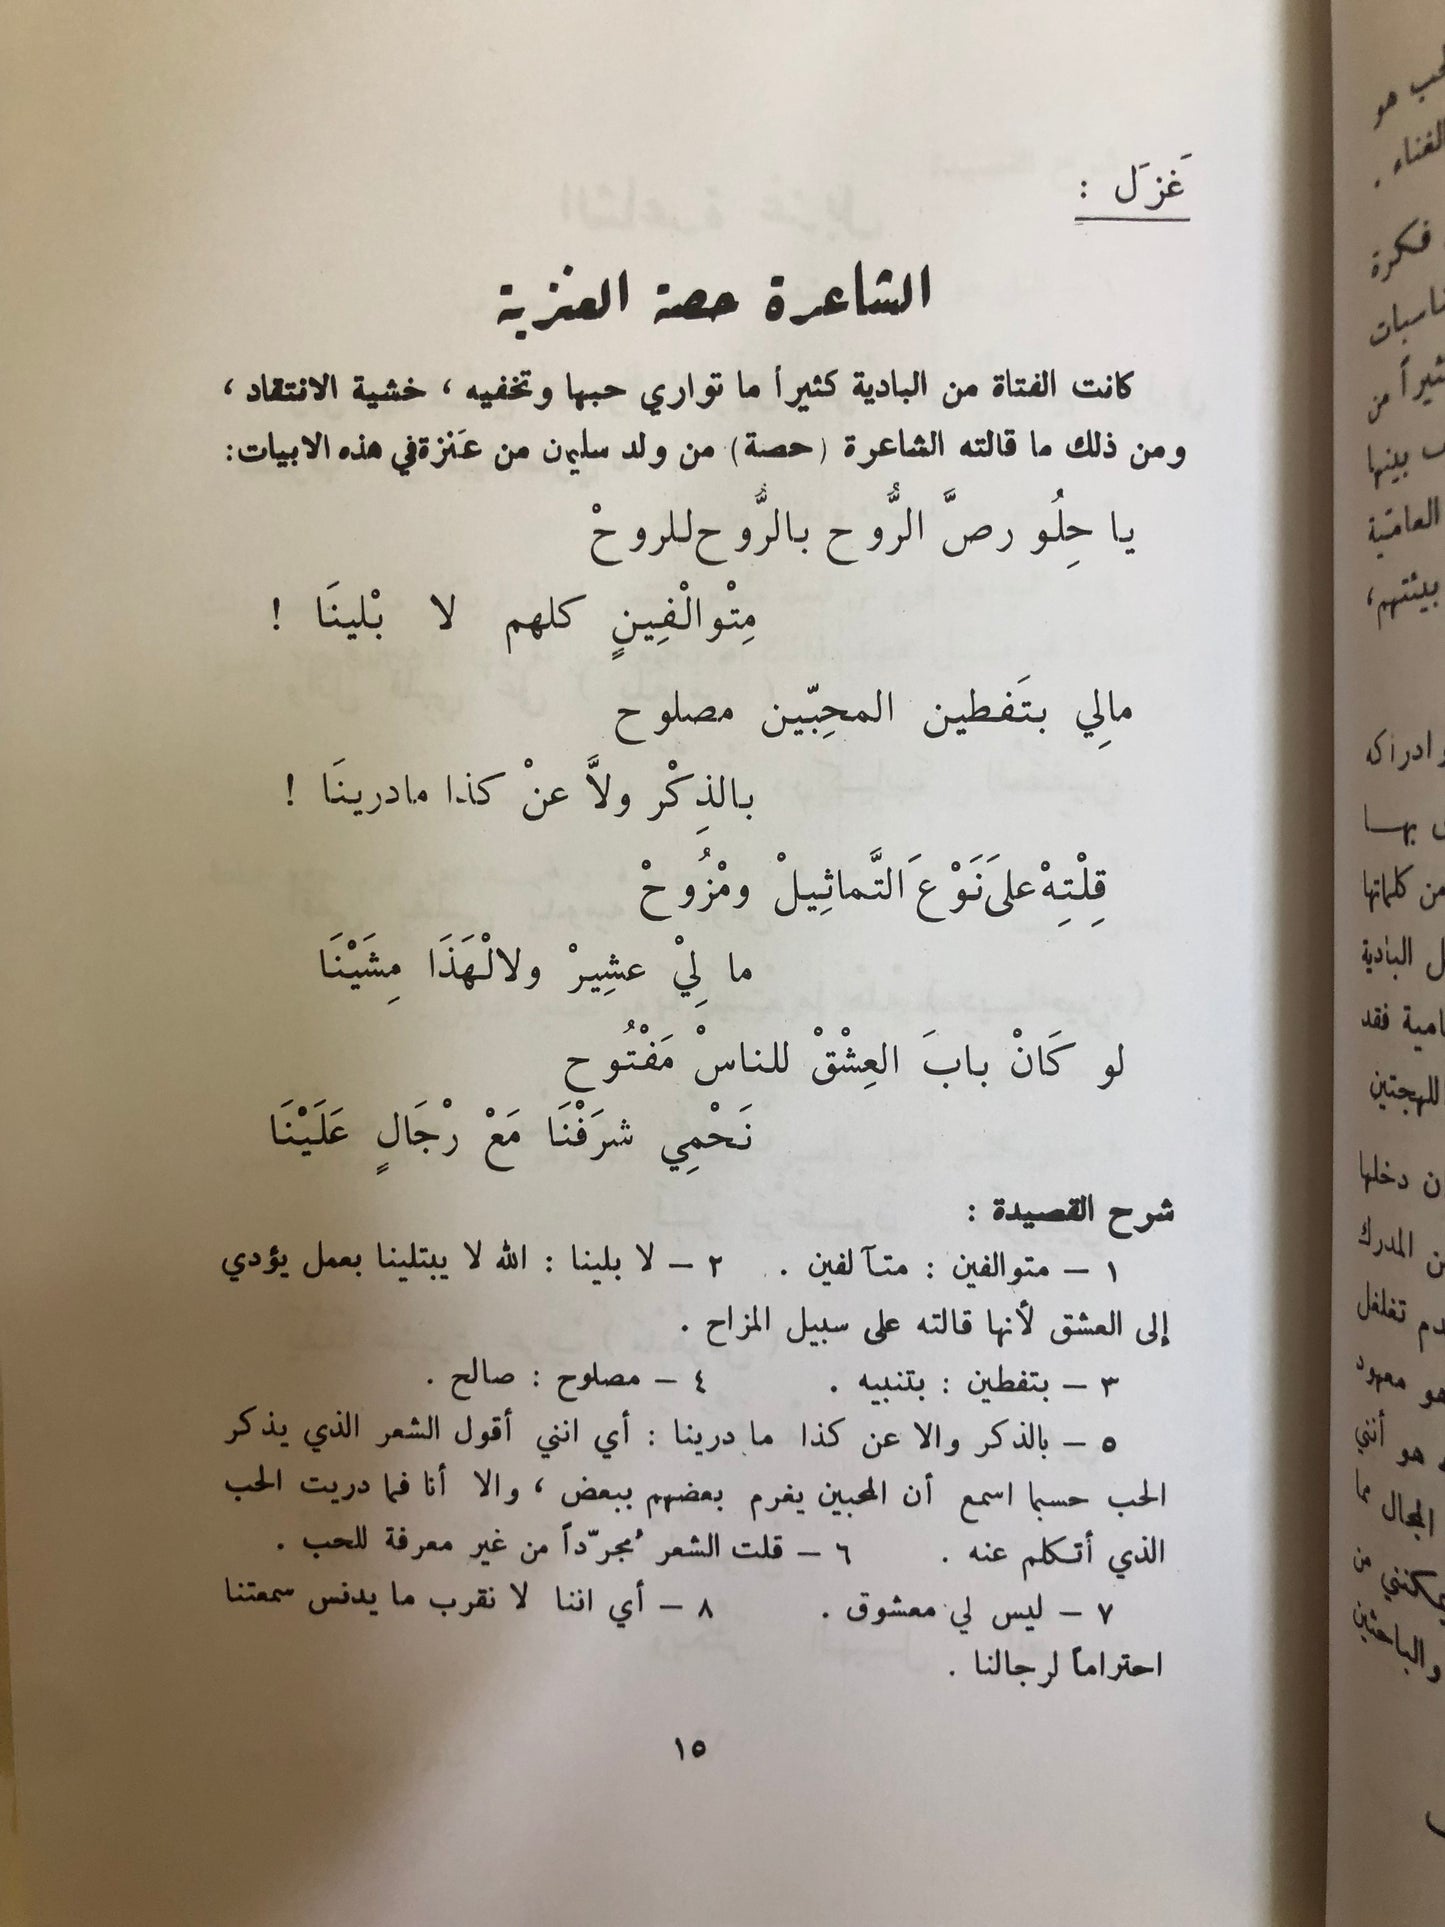 غَزَل :
الشاعرة حصة العنزية
كانت الفتاة من البادية كثيراً ما تواري حبها وتخفيه ، خشية الانتقاد ،
ومن ذلك ما قالته الشاعرة (حصة) من ولد سليمن من عَنزة في هذه الابيات:
يا حِلُو رصَّ الرُّوح بالرُّوح للروحْ
مِتْوالْفِينٍ كلهم لا بْلينَا !
مالِي بتَفطين المحِبّين مصلوح
بالذِكْر ولاَّ عنْ كذا مادرينَا !
قِلْتِهْ علىَ نَوْعَ التَّماثِيلْ ومْزُوحْ
ما لِيْ عشِيرْ ولالْهَذَا مِشَيْنَا
لو كَانْ بابَ العِشْقْ للناسْ مَفْتُوح
نَحْمِي شرَفْنَا مَعْ رْجَالٍ عَلَيْنَا
شرح القصيدة :
١ – متوالفين : متآلفين . ٢ – لا بلينا : الله لا يبتلينا بعمل يؤدي
إلى العشق لأنها قالته على سبيل المزاح .
٣ – بتفطين : بتنبيه . ٤ – مصلوح : صالح .
٥ – بالذكر والا عن كذا ما درينا : أي انني أقول الشعر الذي يذكر
الحب حسبما اسمع أن المحبين يغرم بعضهم ببعض ، والا أنا فما دريت الحب
الذي أتكلم عنه . ٦ – قلت الشعر مُجرّداً من غير معرفة للحب .
٧ – ليس لي معشوق . ٨ – أي اننا لا نقرب ما يدنس سمعتنا
احتراماً لرجالنا .
١٥
هو
الغناء .
فكرة
من
بينها
العاميّة
بيئتهم،
وادراكه
بها
من كلماتها
البادية
فقد
للهجتين
دخلها
المدرك
تغلغل
هو معهود
هو أنني
المجال مما
يمكنني من
والباحثين